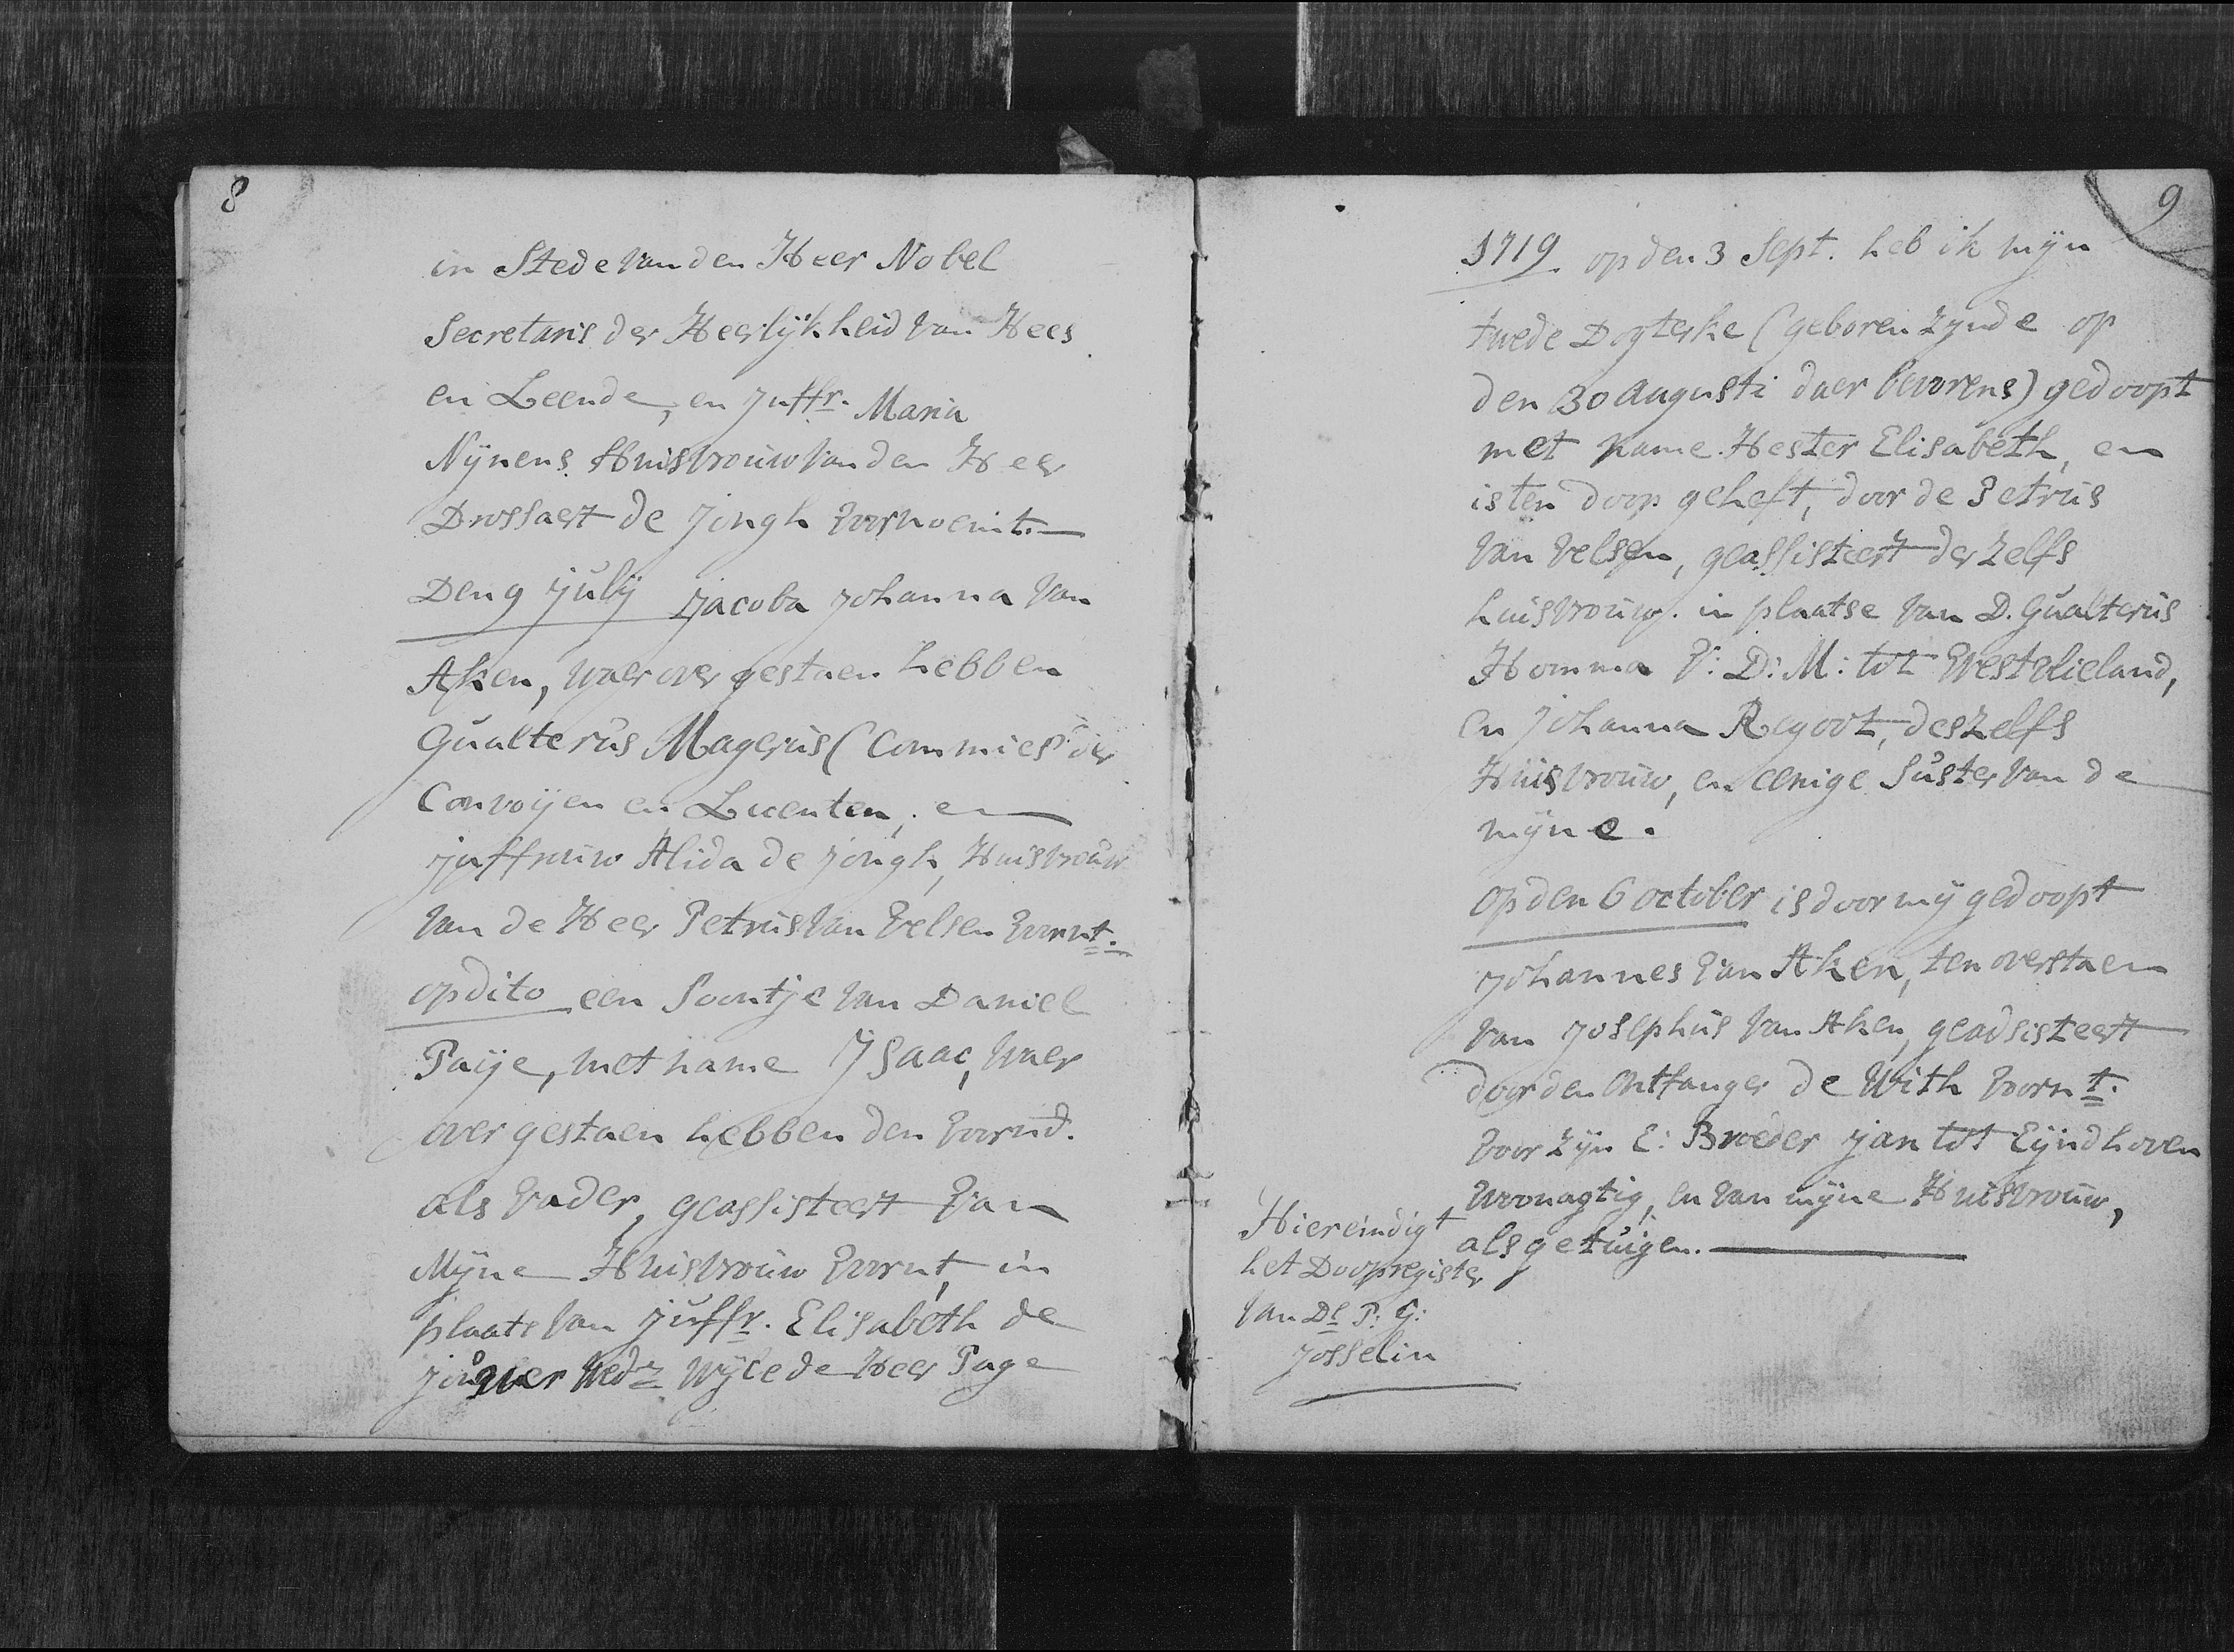 8
in Stede van den Heer Nobel
Secretaris der Heerlijkheid van Hees
en Leende, en Juffr. Maria
Nÿnens Huisvrouw van den Heer
Drossaert de Jongh voornoemt.
Den 9 Julÿ Jacoba Johanna van
Aken, waer over gestaen hebben
Gualterus Magerus (Commies der
Convoÿen en Licenten, en
juffrouw Alida de Jongh, Huisvrouw
van de Heer Petrus van Velsen voornt.
op dito een Soontje van Daniel
Paÿe, met name Isaac, waer
over gestaen hebben den voornd.
als vader, geassisteert van
Mÿne Huisvrouw voornt, in
plaats van Juffr. Elisabeth de
Wedr Wÿle de Heer Page
9
1719 op den 3 Sept. heb ik mÿn
twede Dogterke (geboren zynde op
den 30 Augusti daer bevorens) gedoopt
met name Hester Elisabeth, en
is ten doop geheft, door de Petrus
van Velsen, geassisteert der zelfs
huisvrouw. in plaatse van D. Gualterus
Homma V: D: M: tot Westvlieland,
en Johanna Regoot, deszelfs
Huisvrouw, en eenige Suster van de
mÿne.
op den 6 october is door mÿ gedoopt
Johannes van Aken, ten overstaen
van Josephus van Aken, geadsisteert
door den Ontfanger de With voornt.
voor zÿn E: Broeder Jan tot Eÿndhoven
woonagtig, en van mÿne Huisvrouw,
als getuigen.
Hier eindigt
het Doopregister
van Ds P: G:
Josselin